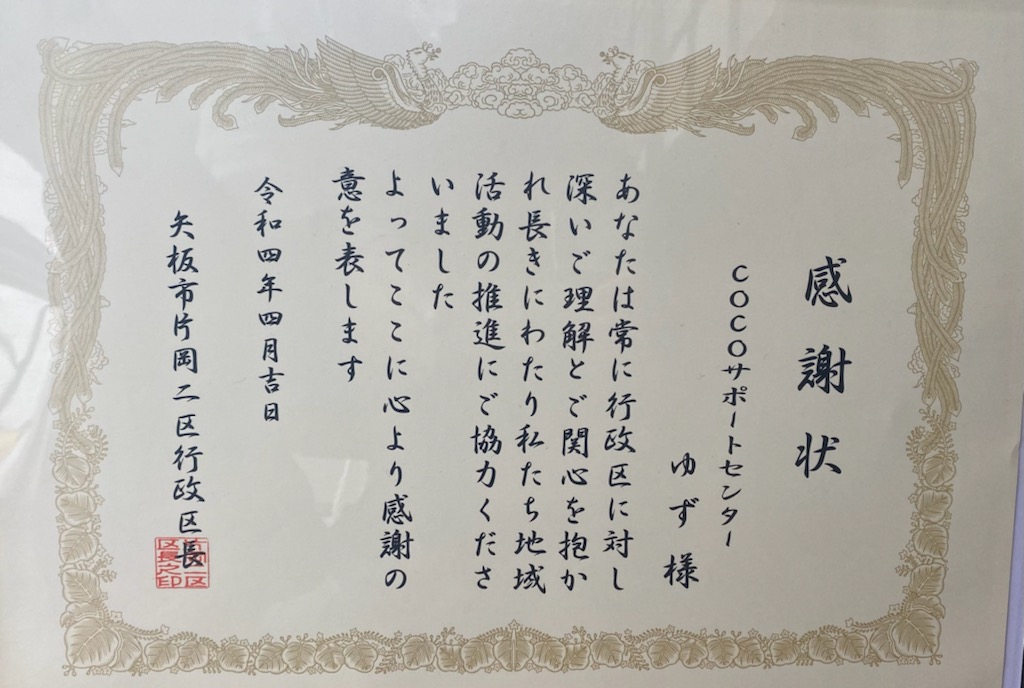 感謝状
COCOサポートセンター
ゆず様
あなたは常に行政区に対し
深いご理解とご関心を抱か
れ長きにわたり私たち地域
活動の推進にご協力くださ
いました
よってここに心より感謝の
意を表します
令和四年四月吉日
矢板市片岡二区行政区長
区長之印